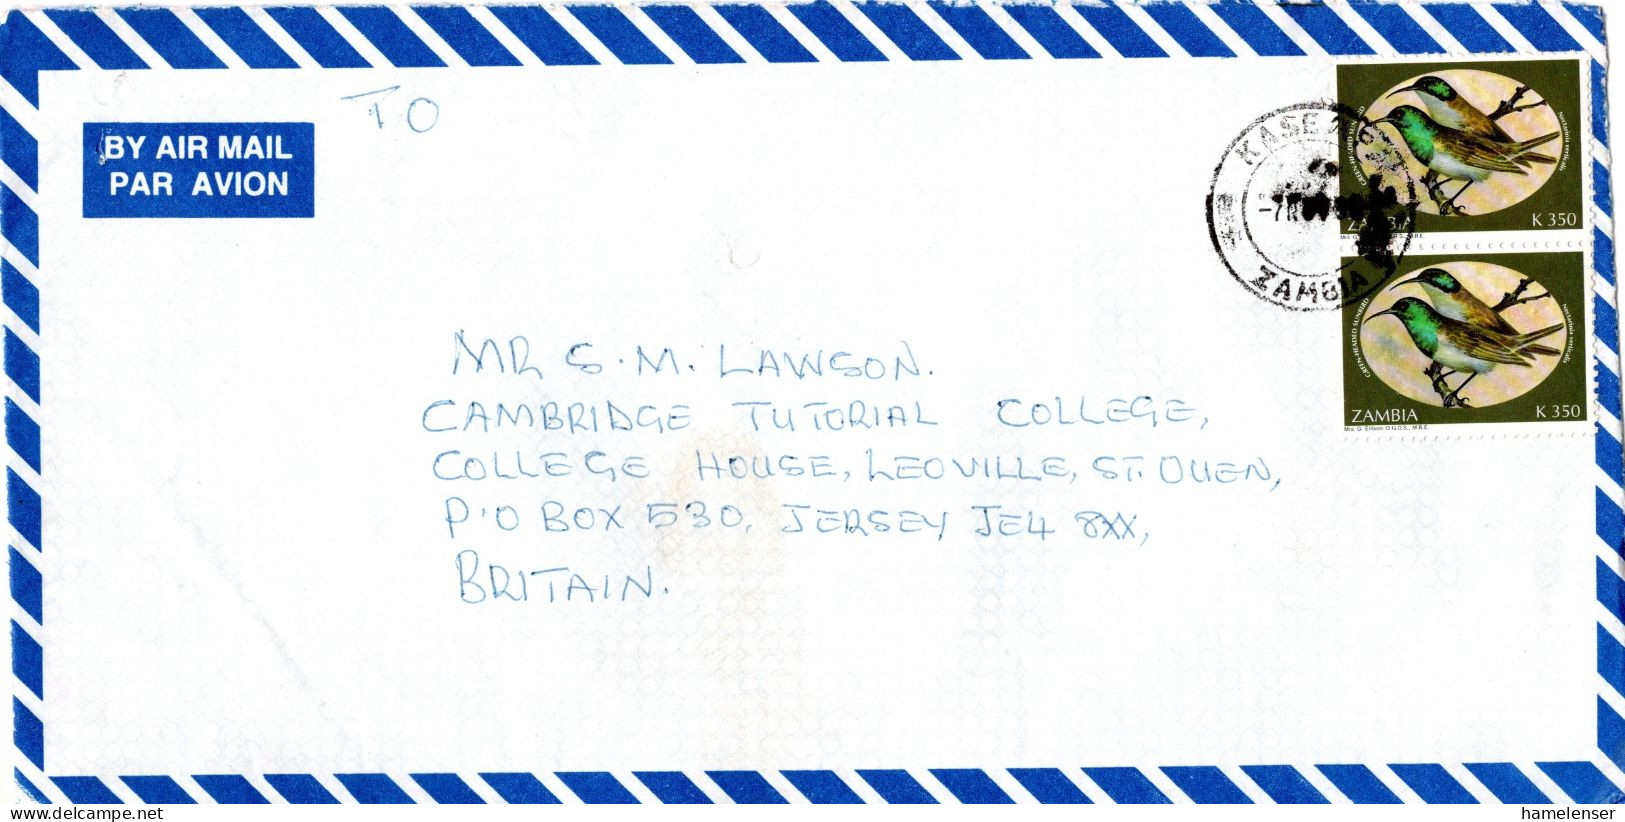 TO
BY AIR MAIL
PAR AVION
GREEN-HEADED SUNBIRD
Nectarinia verticalis
ZAMBIA K 350
ZAMBIA
GREEN-HEADED SUNBIRD
Nectarinia verticalis
ZAMBIA K 350
Mrs G. Ellison O.G.D.S., M.B.E.
MR S.M. LAWSON.
CAMBRIDGE TUTORIAL COLLEGE,
COLLEGE HOUSE, LEOVILLE, ST. OUEN,
P.O BOX 530, JERSEY JE4 8XX,
BRITAIN.
delcampe.net
hamelenser